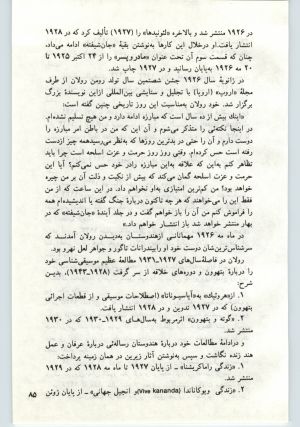 در ۱۹۲۶ منتشر شد و بالاخره «لئونیدها» را (۱۹۲۷) تألیف کرد که در ۱۹۲۸
انتشار یافت. او درخلال این کارها به‌نوشتن بقیهٔ «جان‌شیفته» ادامه می‌داد،
چنان که قسمت سوم آن تحت عنوان «مادر و پسر» را از ۲۴ اکتبر ۱۹۲۵ تا
۲۰ مه ۱۹۲۶ به‌پایان رسانید و در ۱۹۲۷ چاپ شد.
در ژانویهٔ سال ۱۹۲۶ جشن شصتمین سال تولد رومن رولان از طرف
مجلهٔ «اروپ» (اروپا) با تجلیل و ستایش بین‌المللی ازاین نویسندهٔ بزرگ
برگزار شد. خود رولان به‌مناسبت این روز تاریخی چنین گفته است:
«اینك بیش از ده سال است که مبارزه ادامه دارد و من هیچ تسلیم نشده‌ام.
در اینجا نکته‌ئی را متذکر می‌شوم و آن این که من در باطن امر مبارزه را
دوست دارم و آن را حتی در بدترین روزها که به‌نظر می‌رسید همه چیز از دست
رفته است حس کرده‌ام. وقتی روز روز حرمت و عزت اسلحه است چرا باید
تظاهر کنم به‌این که علاقه به‌این مبارزه را در خود حس نمی‌کنم؟ آیا این
حرمت و عزت اسلحه گمان می‌کند که بیش از نکبت و ذلت آن بر من چیره
خواهد بود! من کم‌ترین امتیازی به‌او نخواهم داد. در این ساعت که از من
این را می‌خواهند که هر چه تاکنون دربارهٔ جنگ گفته یا اندیشیده‌ام همه
را فراموش کنم من آن را باز خواهم گفت و در جلد آیندهٔ «جان‌شیفته» که در
بهار منتشر خواهد شد باز انتشار خواهم داد.»
در ماه مه ۱۹۲۶ مهمانانی ازهندوستان به‌دیدن رولان آمدند که
سرشناس‌ترین‌شان دوست خود او رابیندرانات تاگور و جواهر لعل نهرو بود.
رولان در فاصلهٔ سال‌های ۱۹۲۷-۱۹۳۱ مطالعهٔ عظیم موسیقی‌شناسی خود
را دربارهٔ بتهوون و دوره‌های خلاقه از سر گرفت (۱۹۲۸-۱۹۴۳)، بدین
شرح:
۱. از «هروئیك» به «آپاسیوناتا» (اصطلاحات موسیقی و از قطعات اجرائی
بتهوون) که در ۱۹۲۷ تدوین و در ۱۹۲۸ انتشار یافت.
۲. «گوته و بتهوون» اثرمربوط به‌سال‌های ۱۹۲۹-۱۹۳۰ که در ۱۹۳۰
منتشر شد.
و در ادامهٔ مطالعات خود دربارهٔ هندوستان رساله‌ئی دربارهٔ عرفان و عمل
هند زنده نگاشت و سپس به‌نوشتن آثار زیرین در همان زمینه پرداخت:
۱. «زندگی راماکریشنا» – از پایان ۱۹۲۷ تا ماه مه ۱۹۲۸ که در ۱۹۲۹
منتشر شد.
۲. «زندگی ویوکاناندا (Vive kananda) و انجیل جهانی» – از پایان ژوئن
۸۵